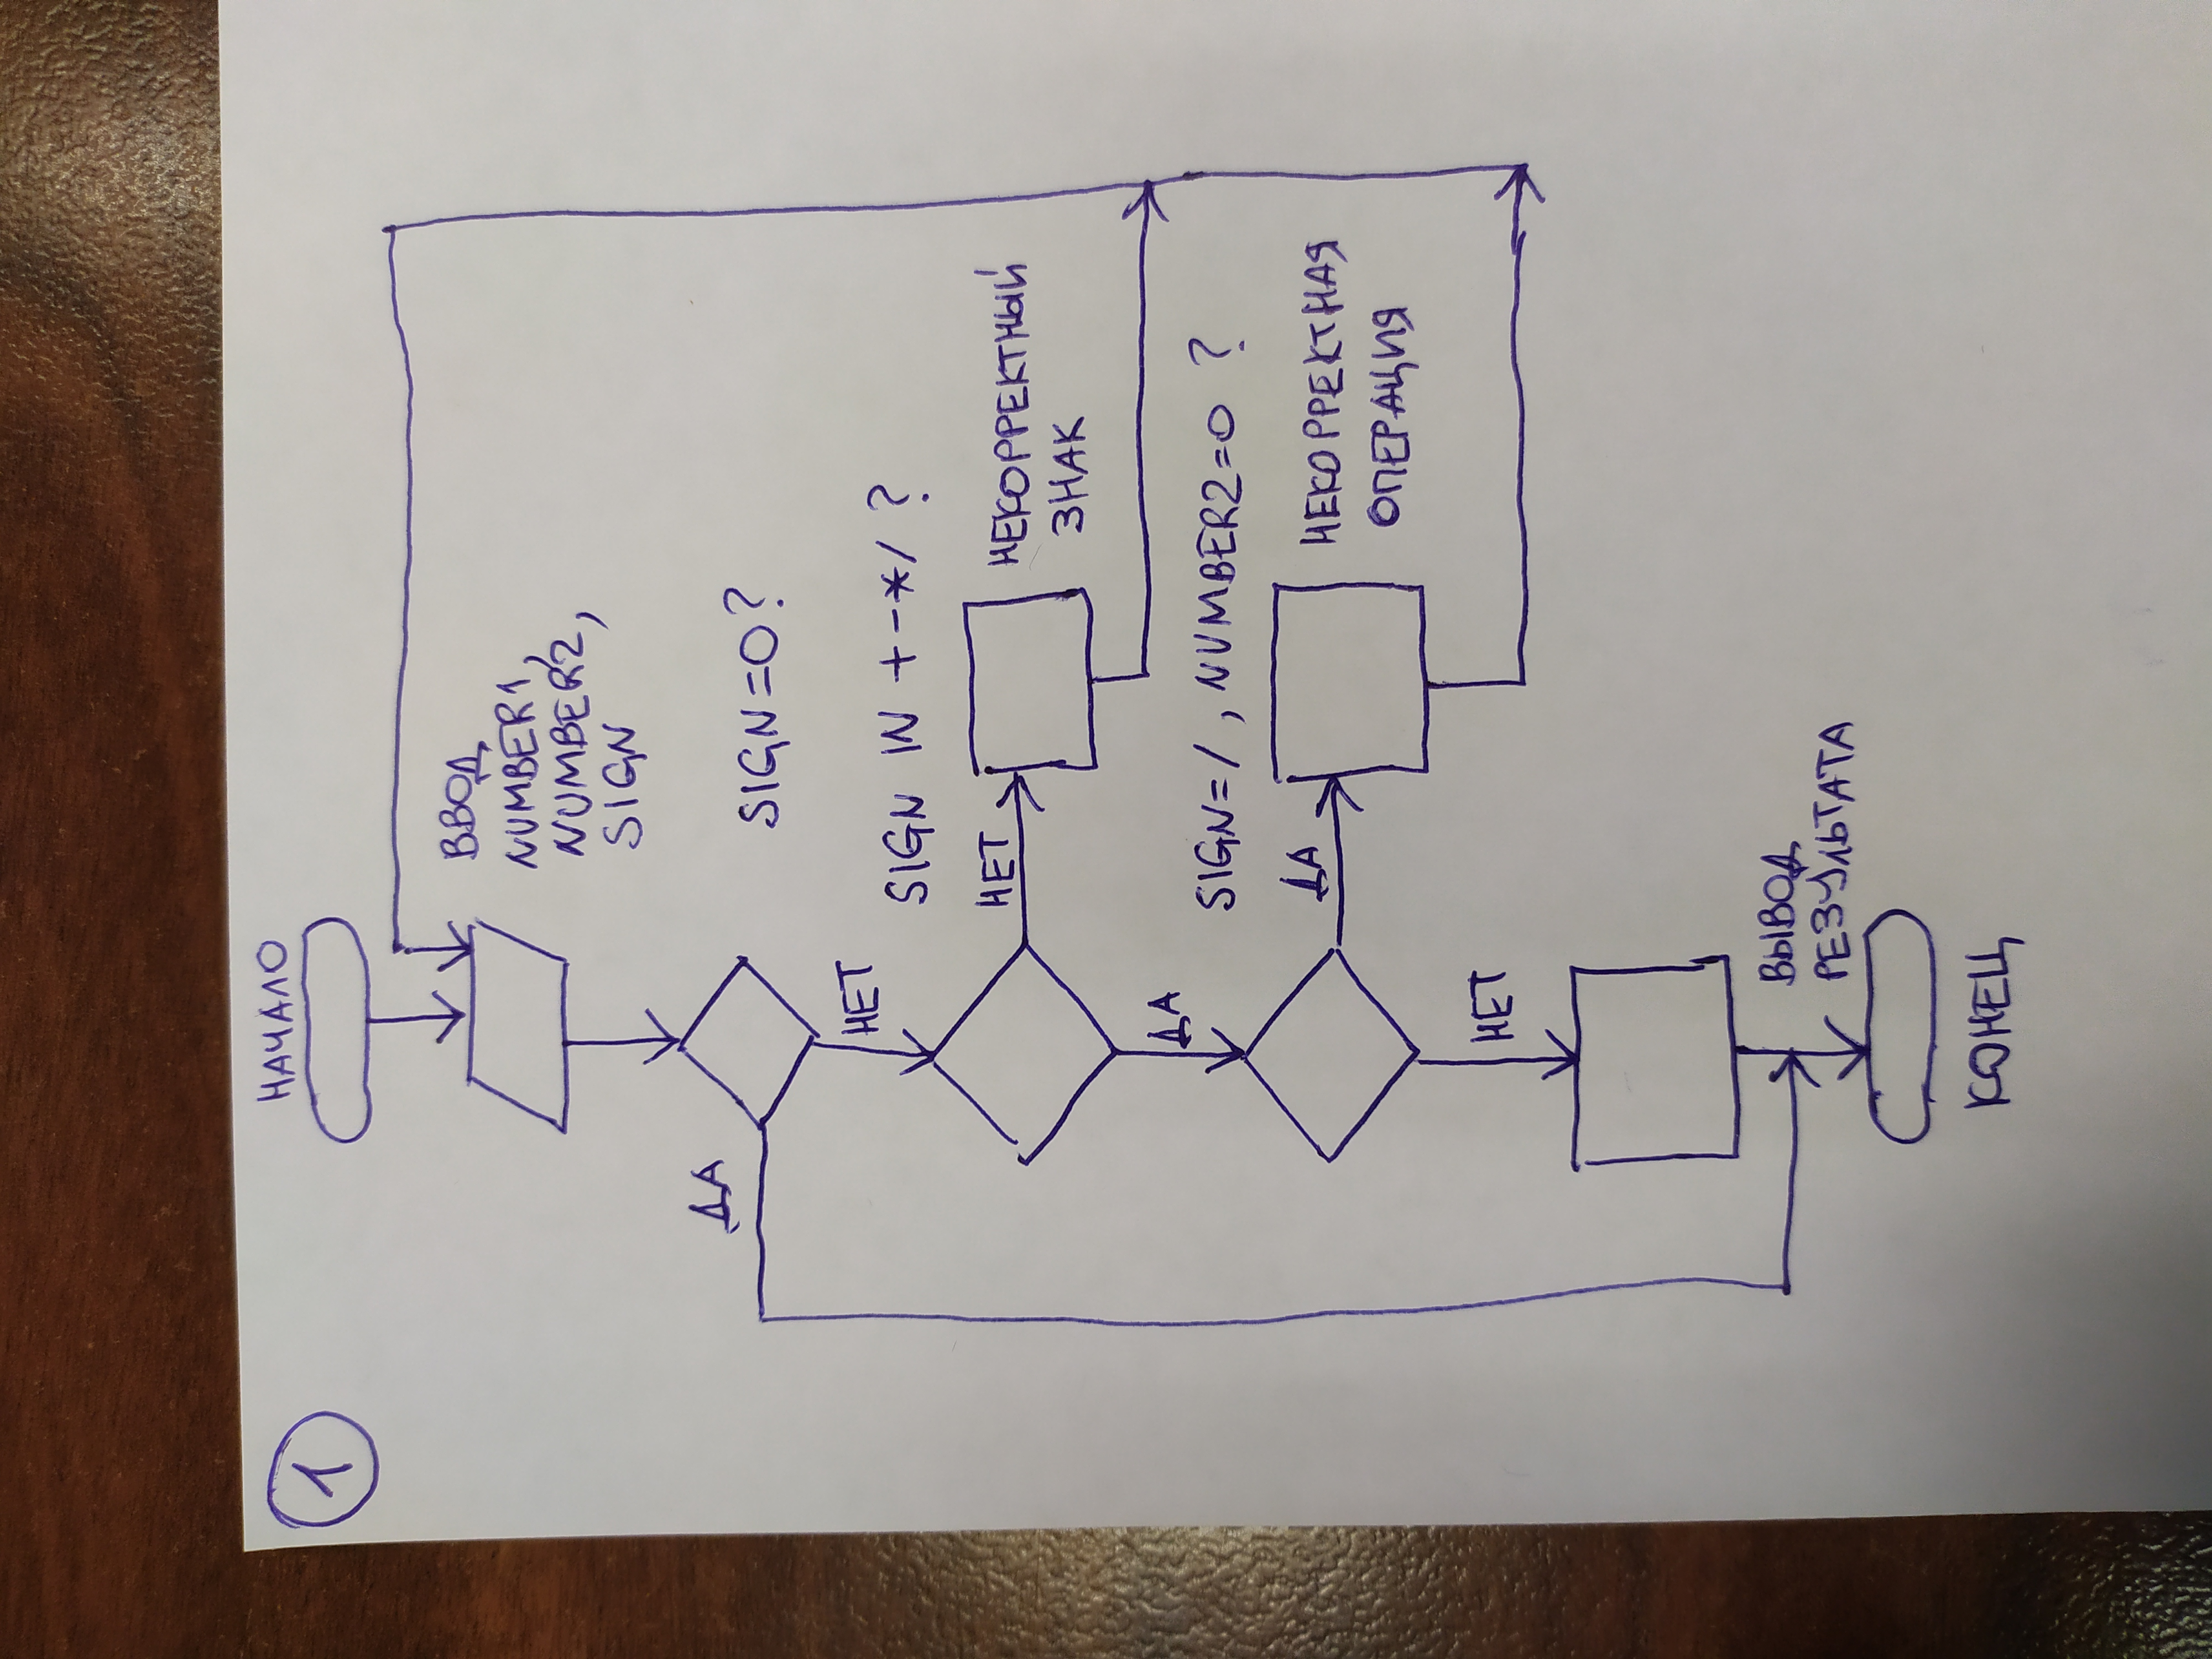 1
НАЧАЛО
ВВОД
NUMBER1,
NUMBER2,
SIGN
ДА
SIGN=0?
НЕТ
SIGN IN +-*/ ?
НЕТ
НЕКОРРЕКТНЫЙ
ЗНАК
ДА
SIGN=/, NUMBER2=0 ?
ДА
НЕКОРРЕКТНАЯ
ОПЕРАЦИЯ
НЕТ
ВЫВОД
РЕЗУЛЬТАТА
КОНЕЦ